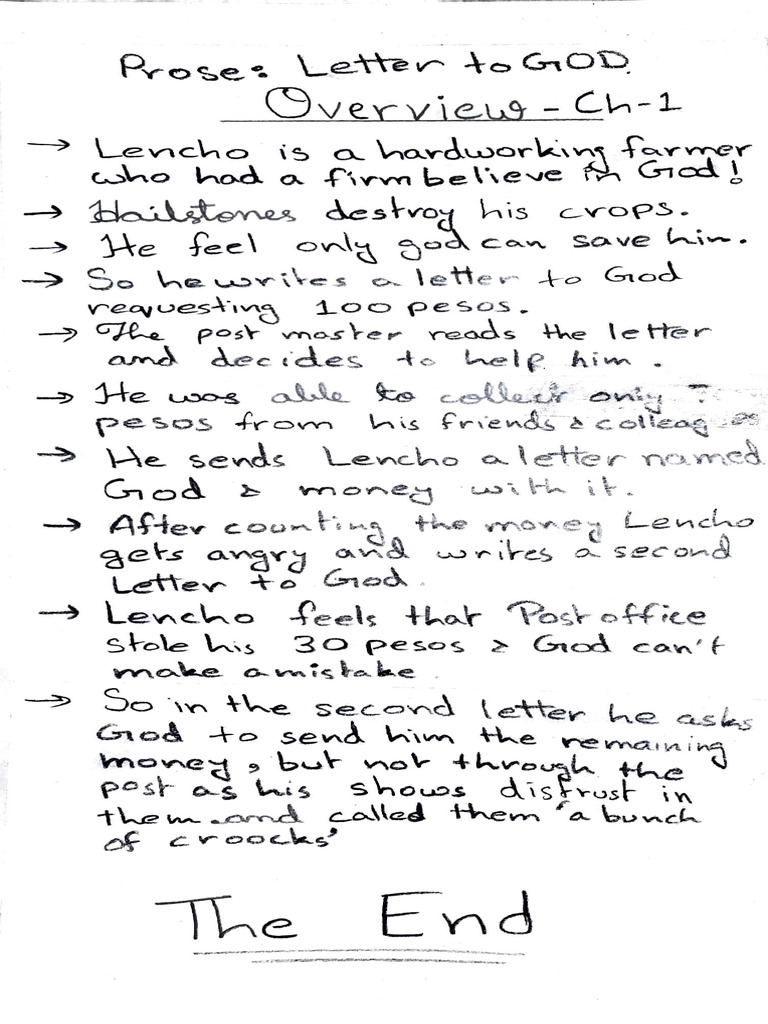 Prose: Letter to GOD.
Overview - Ch-1
→ Lencho is a hardworking farmer
who had a firm believe in God!
→ Hailstones destroy his crops.
→ He feel only god can save him.
→ So he writes a letter to God
requesting 100 pesos.
→ The post master reads the letter
and decides to help him.
→ He was able to collect only
pesos from his friends &
→ He sends Lencho a letter named
God & money with it.
→ After counting the money Lencho
gets angry and writes a second
Letter to God.
→ Lencho feels that Post office
stole his 30 pesos & God can't
make a mistake.
→ So in the second letter he asks
God to send him the remaining
money, but not through the
post as his shows distrust in
them and called them 'a bunch
of croocks'
The End